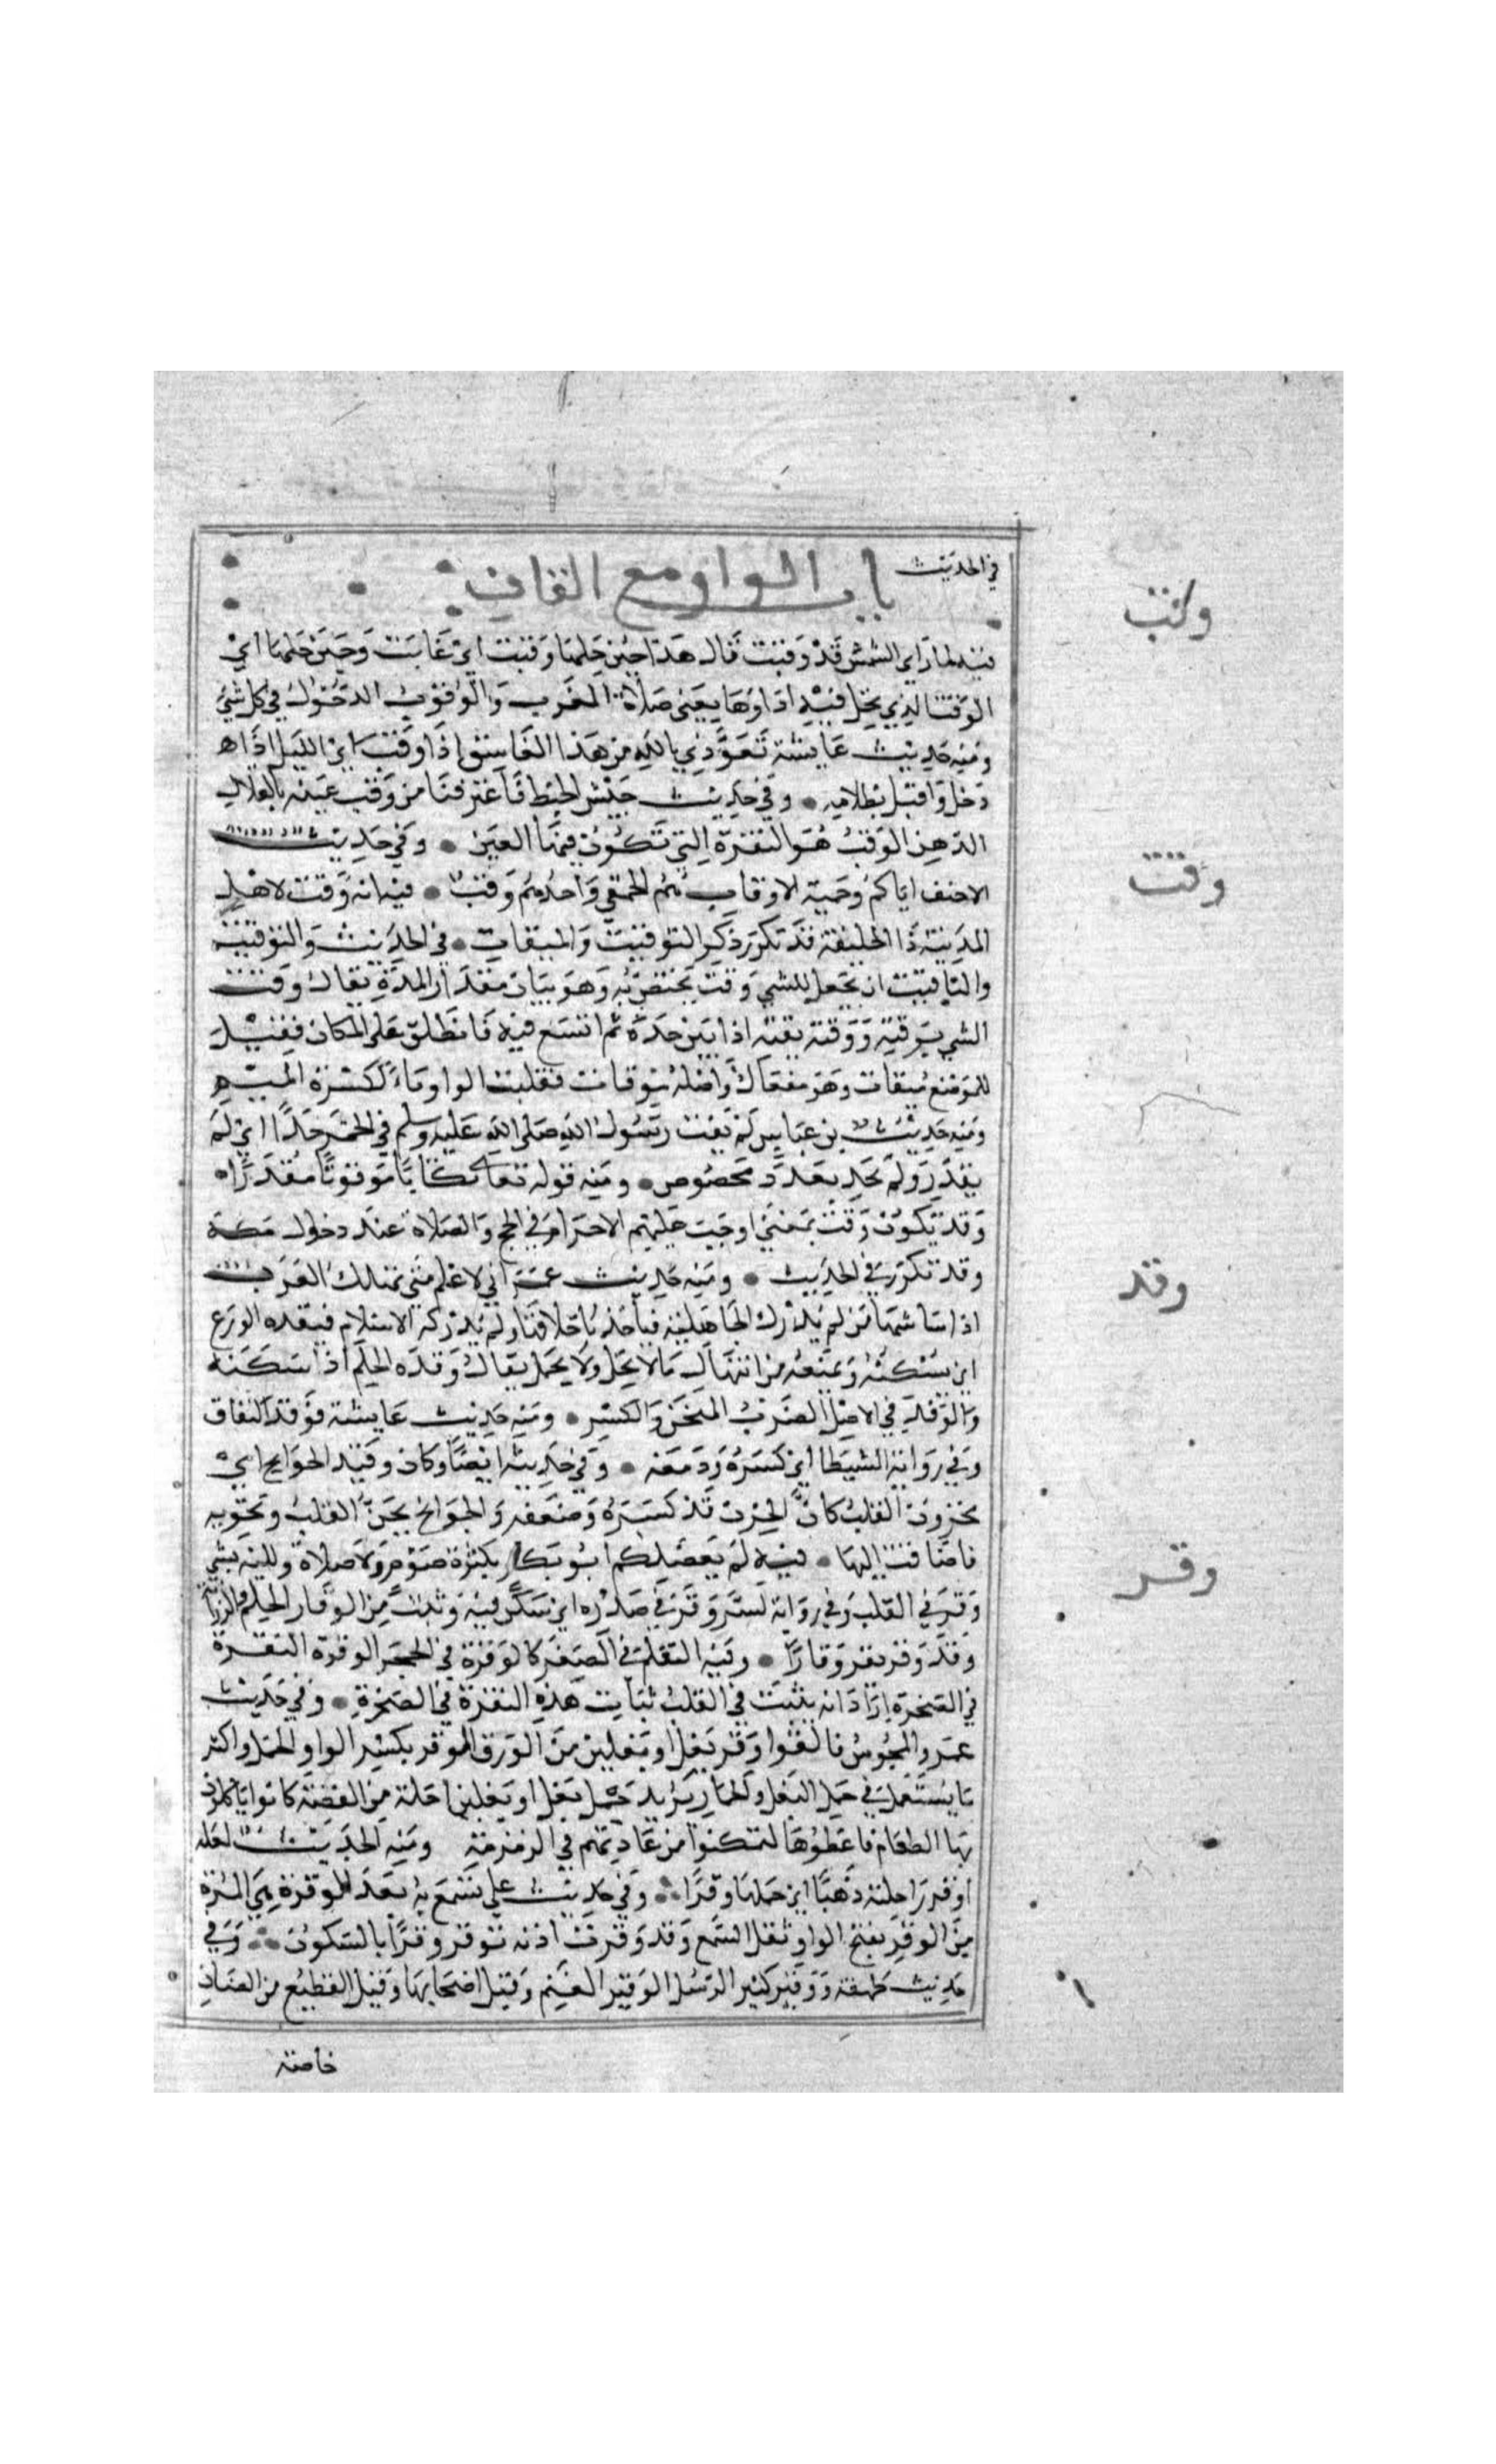 في الحديث باب الواو مع القاف
وقب
فيه لما رأى الشمس قد وقبت قال هذا حين حلها وقبت اي غابت وحين حلها اي
الوقت الذي يحل فيه اداوها يعني صلاة المغرب والوقوب الدخول في كل شي
ومنه حديث عايشة تعوذي بالله من هذا الغاسق اذا وقب اي الليل اذا
دخل واقبل بظلامه وفي حديث جيش الخبط فاغترفنا من وقب عينه بالقلال
الدهن الوقب هو النقرة التي تكون فيها العين وفي حديث
وقت
الاحنف اياكم وحمية الاوقاب هم الحمقى واحدهم وقب فيه انه وقت لاهل
المدينة ذا الحليفة قد تكرر ذكر التوقيت والميقات في الحديث والتوقيت
والتاقيت ان يجعل للشي وقت يختص به وهو بيان مقدار المدة يقال وقت
الشي يوقته ووقته يقته اذا بين حده ثم اتسع فيه فاطلق على المكان فقيل
للموضع ميقات وهو مفعال واصله موقات فقلبت الواو ياء لكسرة الميم
ومنه حديث بن عباس لم يقت رسول الله صلى الله عليه وسلم في الخمر حدا اي لم
يقدر ولم يحد بعدد مخصوص ومنه قوله تعالى كتابا موقوتا مقدرا
وقد تكون وقت بمعنى اوجبت عليهم الاحرام في الحج والصلاة عند دخول
وقد
وقد تكرر في الحديث ومنه حديث عمر اني لاعلم متى تهالك العرب
اذا ساسها من لم يدرك الجاهلية فيأخذ باخلاقنا ولم يدركه الاسلام فيقده الورع
اي يسكنه ويمنعه من انتهاك ما لا يحل ولا يحمل يقال وقده الحلم اذا سكنه
والوقد في الاصل الضرب المثخن والكسر ومنه حديث عايشة فوقد النفاق
وفي رواية الشيطا اي كسره ودمغه وفي حديثه ايضا وكان وقيد الجوانح اي
محزون القلب كان الحزن قد كسره وضعفه والجوانح تجن القلب وتحويه
وقر
فاضافت اليها فيه لم يفضلكم ابو بكر بكثرة صوم ولا صلاة ولكنه بشي
وقر في القلب وفي رواية لسر وقر في صدره اي سكن فيه وثبت من الوقار الحلم والرزانة
وقد وقر يقر وقارا وفيه التعلم في الصغر كالوقرة في الحجر الوقرة النقرة
في الصخرة اراد انه يثبت في القلب ثبات هذه النقرة في الصخرة وفي حديث
عمر والمجوس فالقوا وقر بغل او بغلين من الورق الوقر بكسر الواو الحمل واكثر
ما يستعمل في حمل البغل والحمار يريد حمل بغل او بغلين اخلة من الفضة كانوا ياكلون
بها الطعام فاعطوها ليتمكنوا من عادتهم في الزمزمة ومنه الحديث لعله
اوقر راحلته ذهبا اي حملها وقرا وفي حديث علي تسمع به بعد الوقرة هي المرة
من الوقر بفتح الواو ثقل السمع وقد وقرت اذنه توقر وقرا بالسكون وفي
حديث طهفة ووقير كثير الرسل الوقير الغنم وقيل اصحابها وقيل القطيع من الضان
خاصة